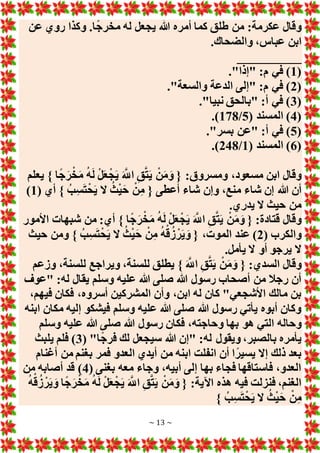 وقال عكرمة: من طلق كما أمره الله يجعل له مخرجًا. وكذا روي عن
ابن عباس، والضحاك.
(1) في م: "إذَا".
(2) في م: "إلى الدعة والسعة".
(3) في أ: "بالحق نبيا".
(4) المسند (178/5).
(5) في أ: "عن بسر".
(6) المسند (248/1).
وقال ابن مسعود، ومسروق: { وَمَنْ يَتَّقِ اللَّهَ يَجْعَلْ لَهُ مَخْرَجًا } يعلم
أن الله إن شاء منع، وإن شاء أعطى { مِنْ حَيْثُ لا يَحْتَسِبُ } أي (1)
من حيث لا يدري.
وقال قتادة: { وَمَنْ يَتَّقِ اللَّهَ يَجْعَلْ لَهُ مَخْرَجًا } أي: من شبهات الأمور
والكرب (2) عند الموت، { وَيَرْزُقْهُ مِنْ حَيْثُ لا يَحْتَسِبُ } ومن حيث
لا يرجو أو لا يأمل.
وقال السدي: { وَمَنْ يَتَّقِ اللَّهَ } يطلق للسنة، ويراجع للسنة، وزعم
أن رجلا من أصحاب رسول الله صلى الله عليه وسلم يقال له: "عوف
بن مالك الأشجعي" كان له ابن، وأن المشركين أسروه، فكان فيهم،
وكان أبوه يأتي رسول الله صلى الله عليه وسلم فيشكو إليه مكان ابنه
وحاله التي هو بها وحاجته، فكان رسول الله صلى الله عليه وسلم
يأمره بالصبر، ويقول له: "إن الله سيجعل لك فرجًا" (3) فلم يلبث
بعد ذلك إلا يسيرًا أن انفلت ابنه من أيدي العدو فمر بغنم من أغنام
العدو، فاستاقها فجاء بها إلى أبيه، وجاء معه بغنى (4) قد أصابه من
الغنم، فنزلت فيه هذه الآية: { وَمَنْ يَتَّقِ اللَّهَ يَجْعَلْ لَهُ مَخْرَجًا وَيَرْزُقْهُ
مِنْ حَيْثُ لا يَحْتَسِبُ }
~ 13 ~